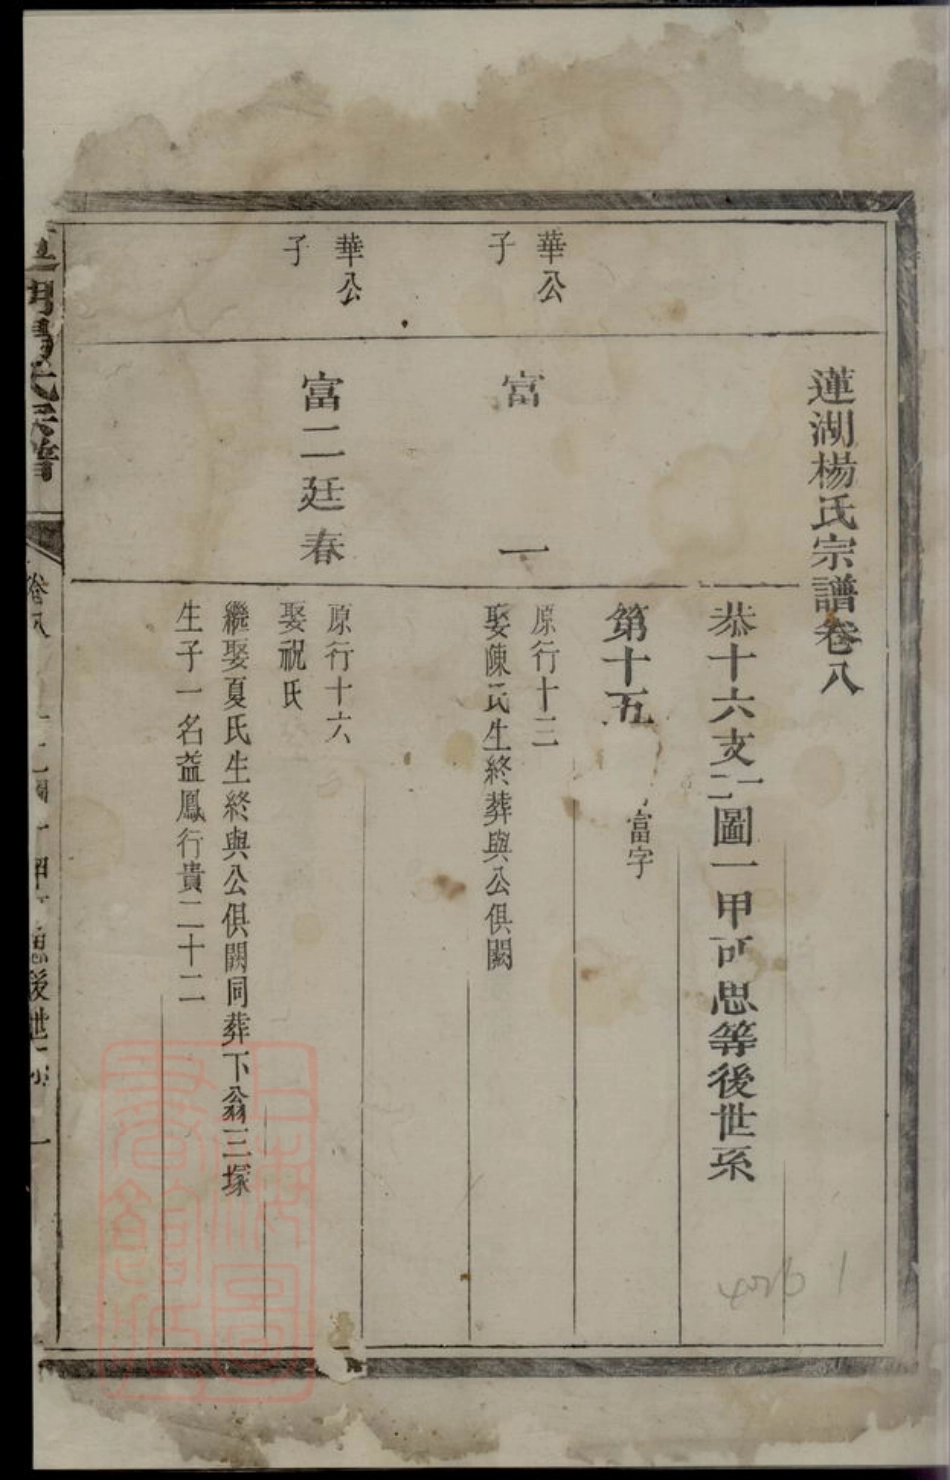 蓮湖楊氏宗譜卷八
恭十六支二圖一甲可思等後世系
第十五
富字
華公
子
富一
原行十三
娶陳氏生終葬與公俱闕
華公
子
富二廷春
原行十六
娶祝氏
繼娶夏氏生終與公俱闕同葬下翁三塚
生子一名益鳳行貴二十二
湖楊氏宗譜
卷八
後世
一
上海圖書館藏